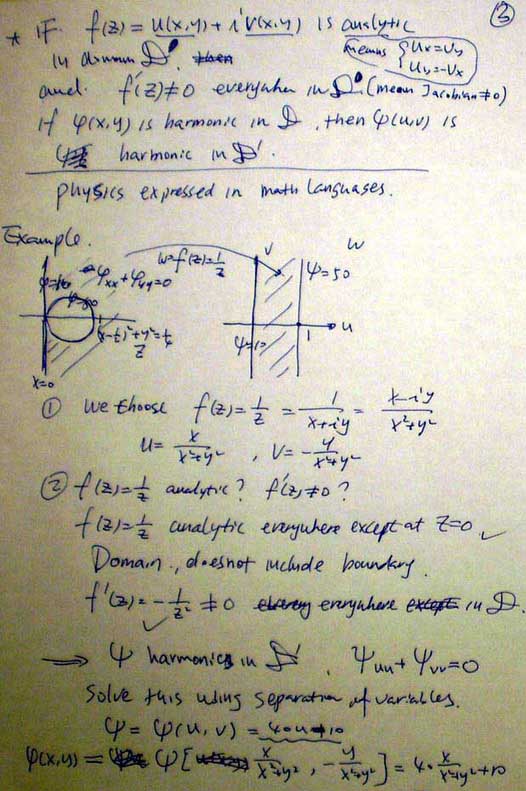 ③
* IF f(z) = u(x,y) + i v(x,y) is analytic
in domain D
means { Ux = Vy
Uy = -Vx
and f'(z) ≠ 0 everywhere in D. (mean Jacobian ≠ 0)
if φ(x,y) is harmonic in D, then φ(u,v) is
harmonic in D'.
physics expressed in math languages.
Example.
w = f(z) = 1/z
V
W
φxx + φyy = 0
ψ = 50
(x - 1/2)² + y² = 1/4
Z
ψ = 10
1
u
x=0
① We choose f(z) = 1/z = 1/(x+iy) = (x-iy)/(x²+y²)
u = x/(x²+y²) , v = - y/(x²+y²)
② f(z) = 1/z analytic? f'(z) ≠ 0?
f(z) = 1/z analytic everywhere except at z=0 ✓
Domain, does not include boundary.
f'(z) = - 1/z² ≠ 0 everywhere in D.
✓
⟹ ψ harmonic in D'. ψuu + ψvv = 0
Solve this using separation of variables.
ψ = ψ(u,v) = 40u+10
φ(x,y) = ψ[ x/(x²+y²) , - y/(x²+y²) ] = 4 · x/(x²+y²) + 10